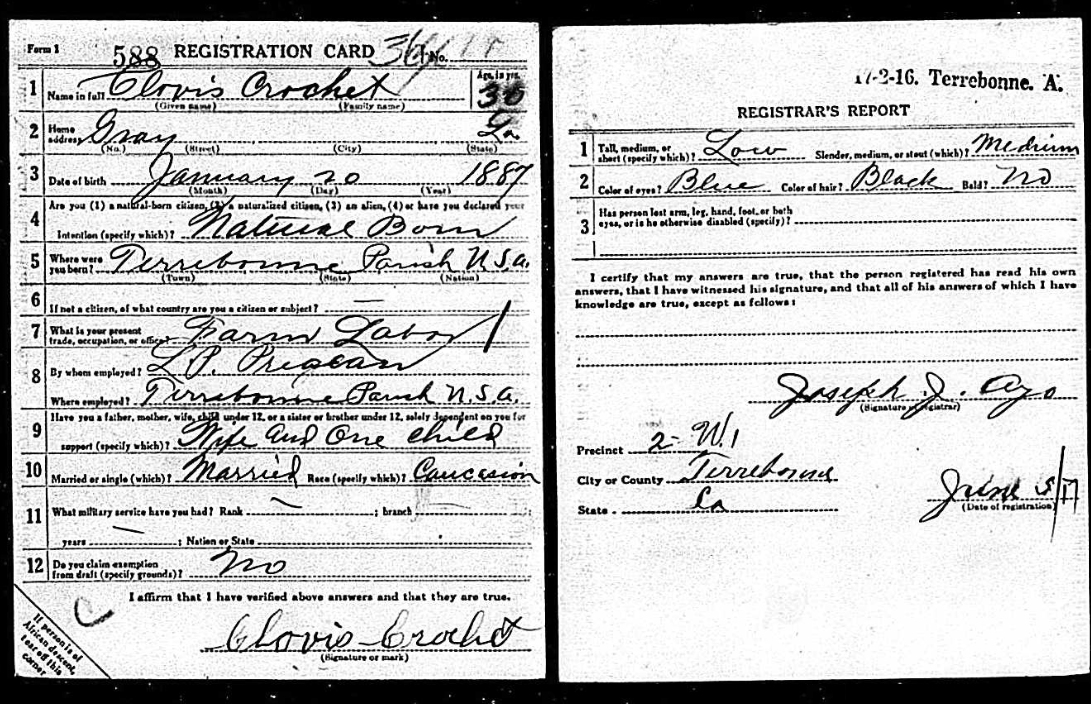 Form 1
588 REGISTRATION CARD No.
1 Name in full Clovis Crochet Age, in yrs. 30
(Given name) (Family name)
2 Home address Gray La.
(No.) (Street) (City) (State)
3 Date of birth January 20 1887
(Month) (Day) (Year)
4 Are you (1) a natural-born citizen, (2) a naturalized citizen, (3) an alien, (4) or have you declared your
Intention (specify which)? Natural Born
5 Where were you born? Terrebonne Parish U.S.a.
(Town) (State) (Nation)
6 If not a citizen, of what country are you a citizen or subject? —
7 What is your present trade, occupation, or office? Farm Labor
8 By whom employed? L.P. Prejean
Where employed? Terrebonne Parish U.S.a.
9 Have you a father, mother, wife, child under 12, or a sister or brother under 12, solely dependent on you for
support (specify which)? Wife and One child
10 Married or single (which)? Married Race (specify which)? Caucasion
11 What military service have you had? Rank — ; branch ;
years — ; Nation or State
12 Do you claim exemption from draft (specify grounds)? No
I affirm that I have verified above answers and that they are true.
Clovis Crochet
(Signature or mark)
If person is of
African descent,
tear off this
corner
C
17-2-16. Terrebonne. A.
REGISTRAR'S REPORT
1 Tall, medium, or short (specify which)? Low Slender, medium, or stout (which)? Medium
2 Color of eyes? Blue Color of hair? Black Bald? No
3 Has person lost arm, leg, hand, foot, or both
eyes, or is he otherwise disabled (specify)?
I certify that my answers are true, that the person registered has read his own
answers, that I have witnessed his signature, and that all of his answers of which I have
knowledge are true, except as follows:
Joseph J. Azo
(Signature of registrar)
Precinct 2- W.1
City or County Terrebonne
State La
June 5/17
(Date of registration)